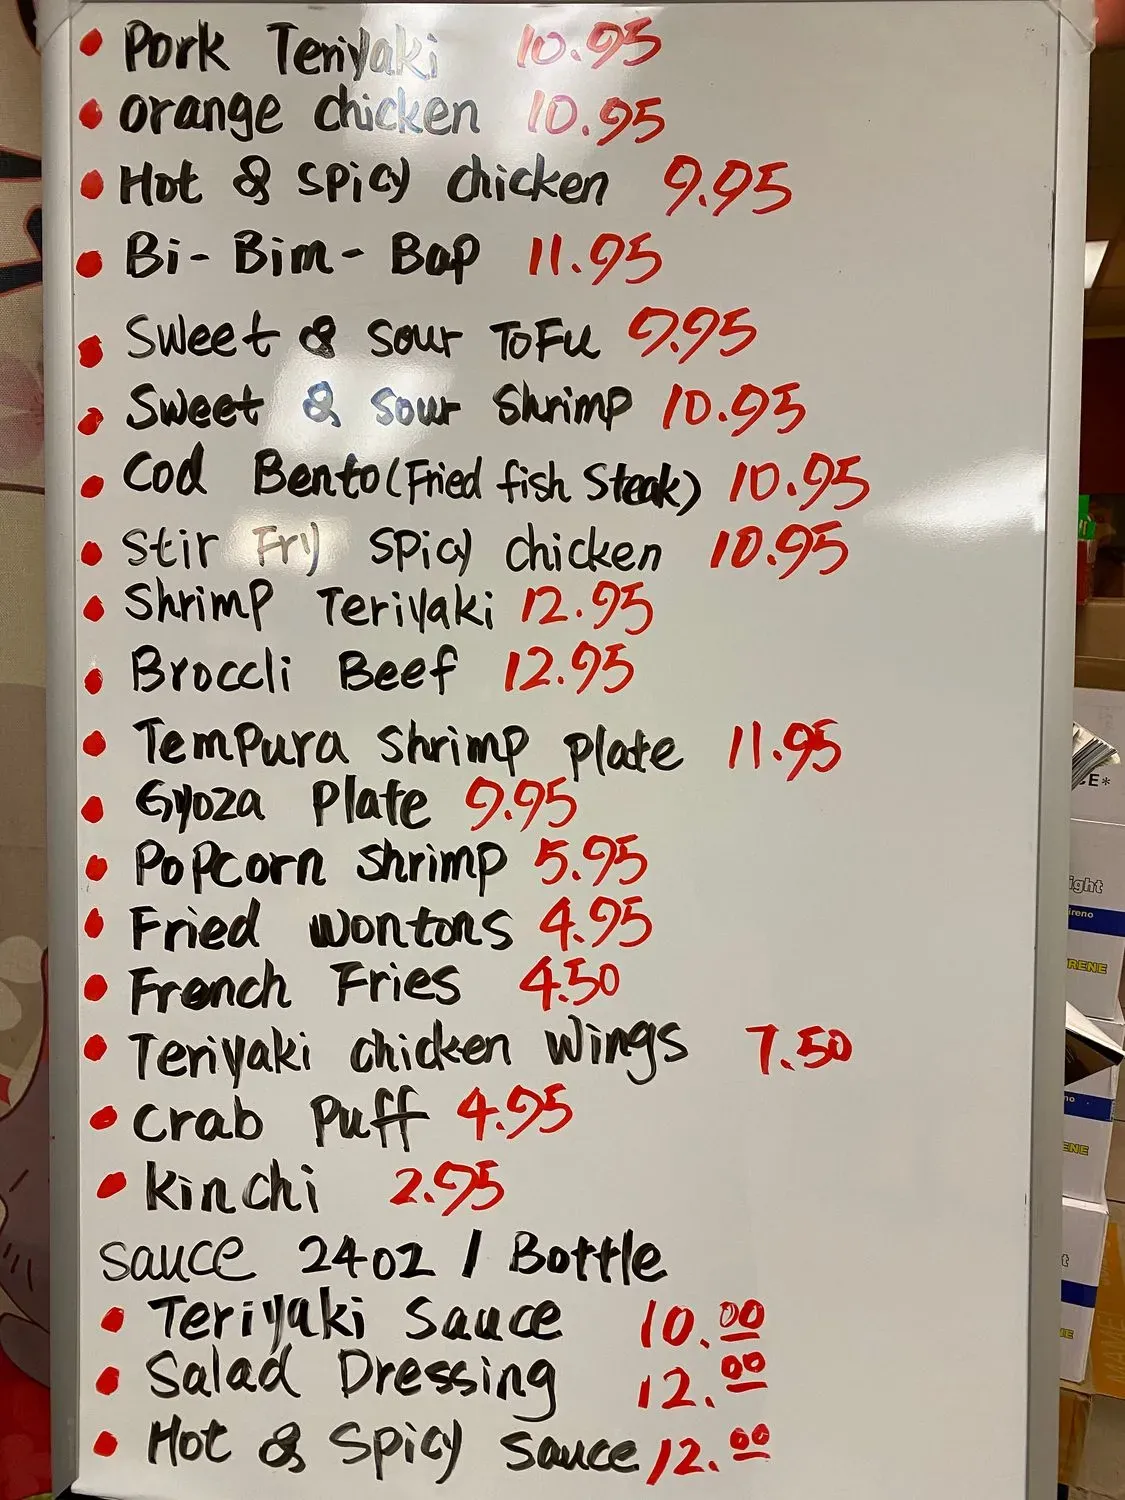 Pork Teriyaki 10.95
orange chicken 10.95
Hot & spicy chicken 9.95
Bi-Bim-Bap 11.95
Sweet & Sour ToFu 9.95
Sweet & Sour Shrimp 10.95
Cod Bento (Fried fish Steak) 10.95
Stir Fry Spicy chicken 10.95
Shrimp Teriyaki 12.95
Broccli Beef 12.95
Tempura Shrimp plate 11.95
Gyoza Plate 9.95
PoPcorn Shrimp 5.95
Fried wontons 4.95
French Fries 4.50
Teriyaki chicken Wings 7.50
Crab Puff 4.95
kinchi 2.95
Sauce 24oz / Bottle
Teriyaki Sauce 10.00
Salad Dressing 12.00
Hot & Spicy Sauce 12.00
CE*
ight
ireno
RENE
no
ENE
t